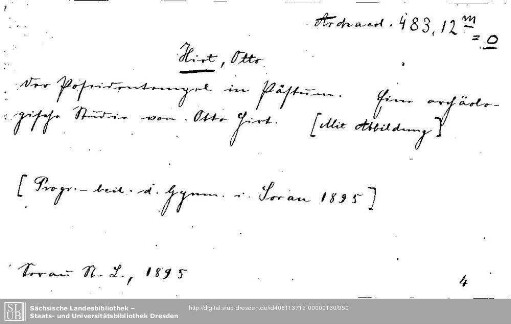 Archaeol. 483, 12 m
= 0
Hirt, Otto
Der Poseidontempel in Pästum. Eine archäolo-
gische Studie von Otto Hirt. [Mit Abbildung]
[Progr.-beil. d. Gymn. i. Sorau 1895]
Sorau N. L., 1895
4
SLUB
Sächsische Landesbibliothek –
Staats- und Universitätsbibliothek Dresden